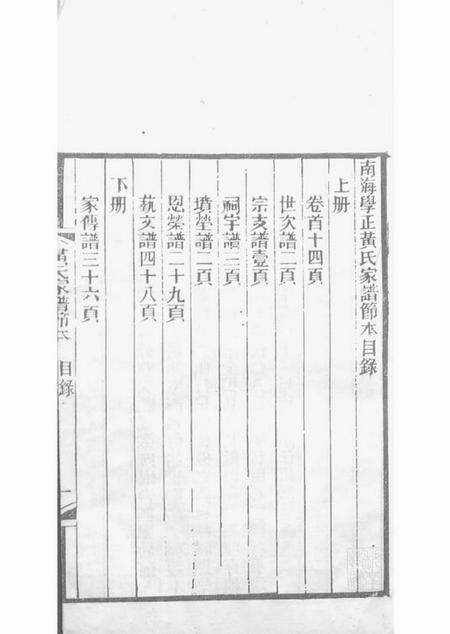 南海學正黃氏家譜節本目錄
上册
卷首十四頁
世次譜二頁
宗支譜壹頁
祠宇譜三頁
墳塋譜二頁
恩榮譜二十九頁
藝文譜四十八頁
下册
家傳譜三十六頁
黃氏家譜節本 目錄